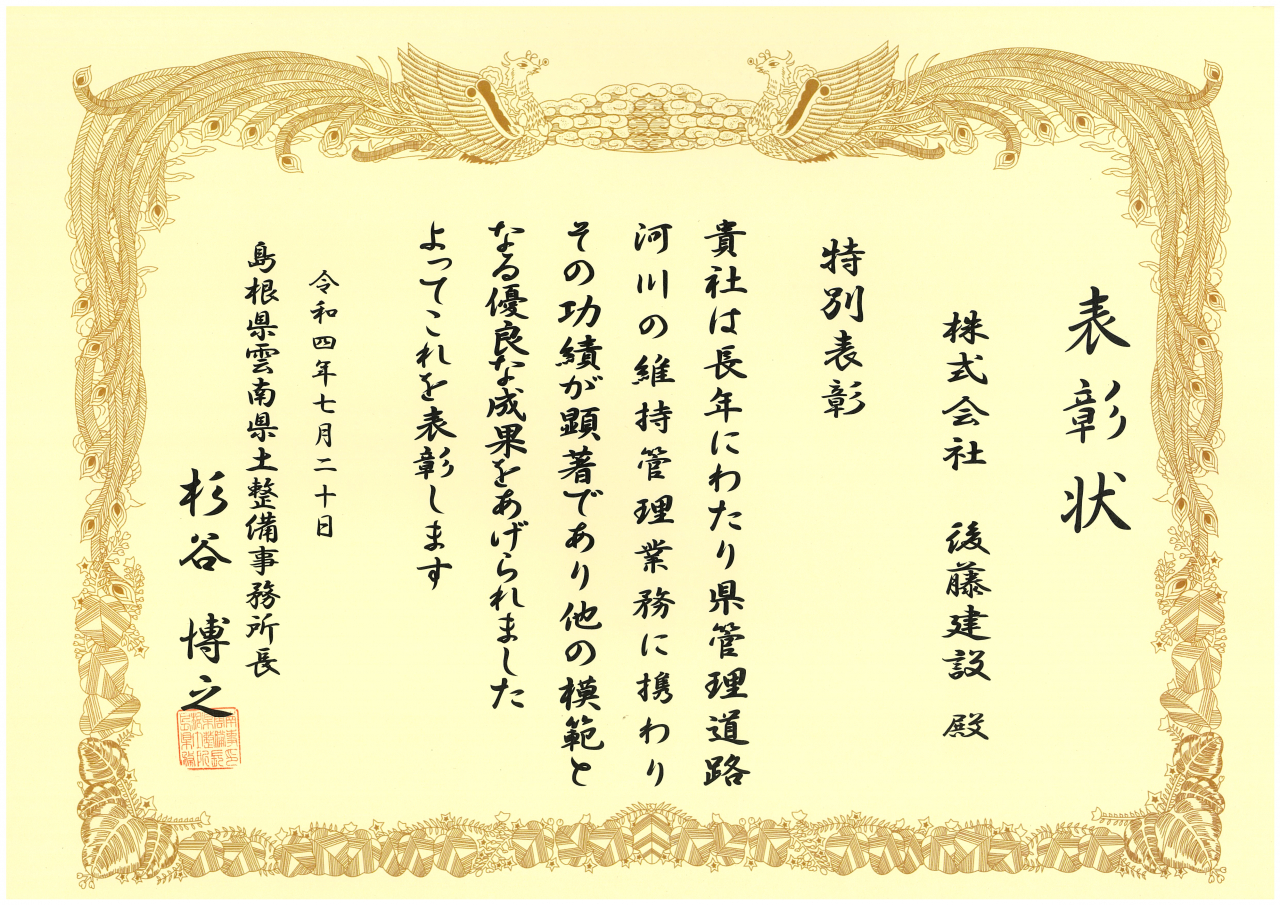 表彰状
株式会社 後藤建設 殿
特別表彰
貴社は長年にわたり県管理道路
河川の維持管理業務に携わり
その功績が顕著であり他の模範と
なる優良な成果をあげられました
よってこれを表彰します
令和四年七月二十日
島根県雲南県土整備事務所長
杉谷 博之